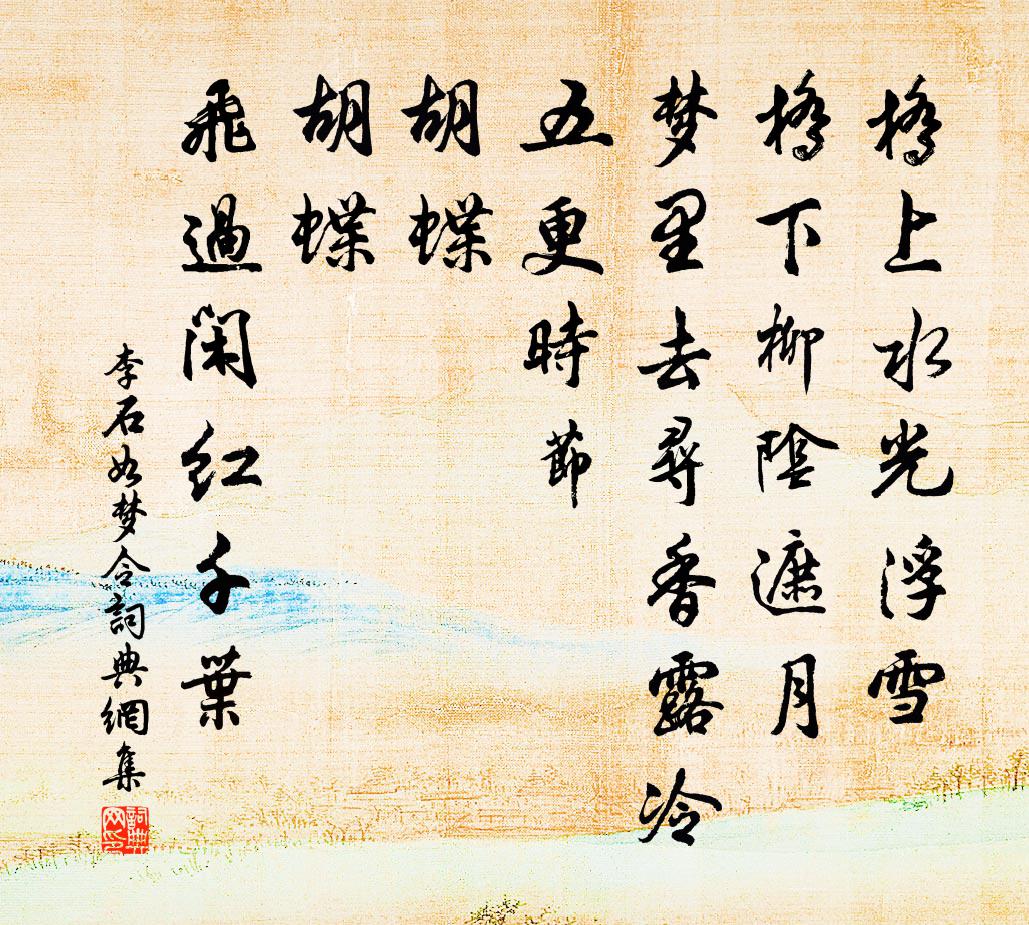 橋上水光浮雪
橋下柳陰遮月
梦里去尋香露冷
五更時節
胡蝶
胡蝶
飛過閑紅千葉
李石如梦令詞典網集
詞典网印